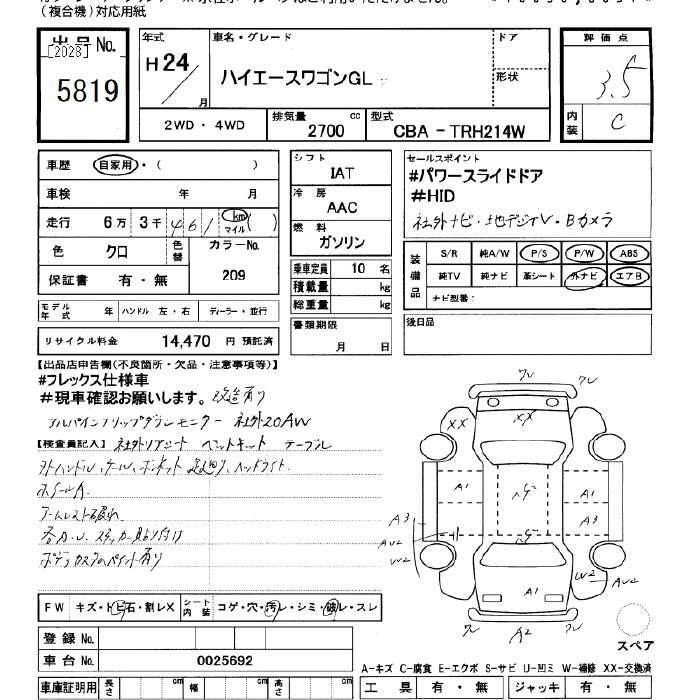 (複合機)対応用紙
出品No.
[2023]
5819
年式
H24
月
車名・グレード
ハイエースワゴンGL
ドア
形状
2WD・4WD
排気量 cc
2700
型式
CBA-TRH214W
評価点
3.5
内装
C
車歴 自家用・( )
車検 年 月
走行 6万 3千 461 km マイル ( )
色 クロ 色替 カラーNo.
209
保証書 有・無
モデル年式 年 ハンドル 左・右 ディーラー・並行
リサイクル料金 14,470 円 預託済
シフト
IAT
冷房
AAC
燃料
ガソリン
乗車定員 10 名
積載量 kg
総重量 kg
書類期限
月 日
セールスポイント
#パワースライドドア
#HID
社外ナビ・地デジTV・Bカメラ
装備品
S/R 純A/W P/S P/W ABS
純TV 純ナビ 革シート 外ナビ エアB
ナビ型番:
後日品
【出品店申告欄(不良箇所・欠品・注意事項等)】
#フレックス仕様車
#現車確認お願いします。 改造有り
アルパインフリップダウンモニター 社外20AW
【検査員記入】 社外リアシート ベットキット テーブル
ホイールA
アームレスト破れ
各A・U ステッカー貼り付け
FW キズ・トビ石・割レX シート内装 コゲ・穴・汚レ・シミ・破レ・スレ
登録No.
車台No. 0025692
車庫証明用 長さ cm 幅 cm 高さ cm
ワレ ワレ
XX XX
A1 A1
A3 A3
AU2
W2
A1
W2 AU2
ワレ A2 ワレ
スペア
A-キズ C-腐食 E-エクボ S-サビ U-凹ミ W-補修 XX-交換済
工具 有・無 ジャッキ 有・無